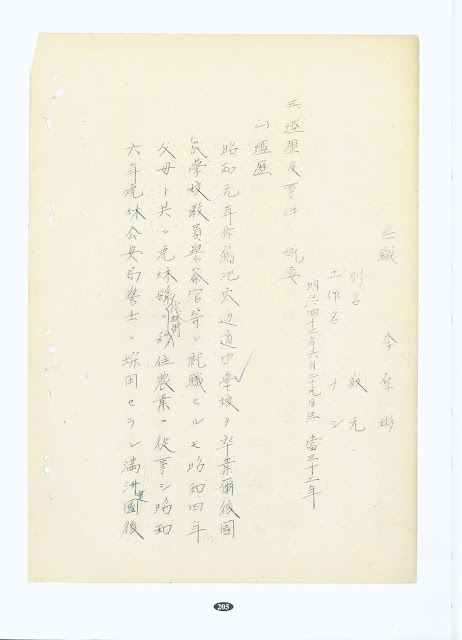 無職 李厚彬
別名 敬元
工作名 ナシ
明治四十三年六月二十九日生 當三十二年
三、經歷及事件ノ概要
(一) 經歷
昭和元年 邊道中學校ヲ卒業爾後國
民學校敎員警察官等ニ就職セルモ昭和四年
父母ト共ニ虎林縣ニ移住農業ニ從事シ昭和
六年虎林公安局警士ニ採用セラレ滿洲國後
205